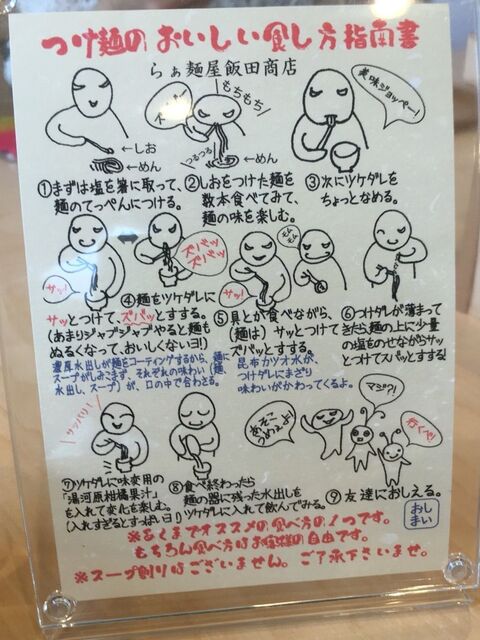 つけ麺のおいしい食し方指南書
らぁ麺屋飯田商店
←しお
←めん
もちもち
つるつる
←めん
美味ジョッペー!
①まずは塩を箸に取って、
麺のてっぺんにつける。
②しおをつけた麺を
数本食べてみて、
麺の味を楽しむ。
③次にツケダレを
ちょっとなめる。
サッ!
ズバッ
ズバッ
サッ!
モムモム
④麺をツケダレに
サッとつけて、ズバッとすする。
(あまりジャブジャブやると麺も
ぬるくなって、おいしくないヨ!)
濃厚水出しが麺をコーティングするから、麺に
スープがしみこまず、それぞれの味わい(麺、
水出し、スープ)が、口の中で合わさる。
⑤具とか食べながら、
(麺は)サッとつけて
ズバッとすする。
昆布かツオ水が
つけダレにまざり
味わいがかわってくるよ。
⑥つけダレが薄まって
きたら麺の上に少量
の塩をのせながらサッ
とつけてスバッとすする!
サッパリ!
⑦ツケダレに味変用の
「湯河原柑橘果汁」
を入れて変化を楽む。
(入れすぎるとすっぱいヨ!)
⑧食べ終わったら
麺の器に残った水出しを
ツケダレに入れて飲んでみる。
あそこ
うめぇよ!
マジ?!
行くべ!
⑨友達におしえる。
おしまい
※あくまでオススメの食べ方の1つです。
もちろん食べ方はお客様の自由です。
※スープ割りはございません。ご了承下さいませ。